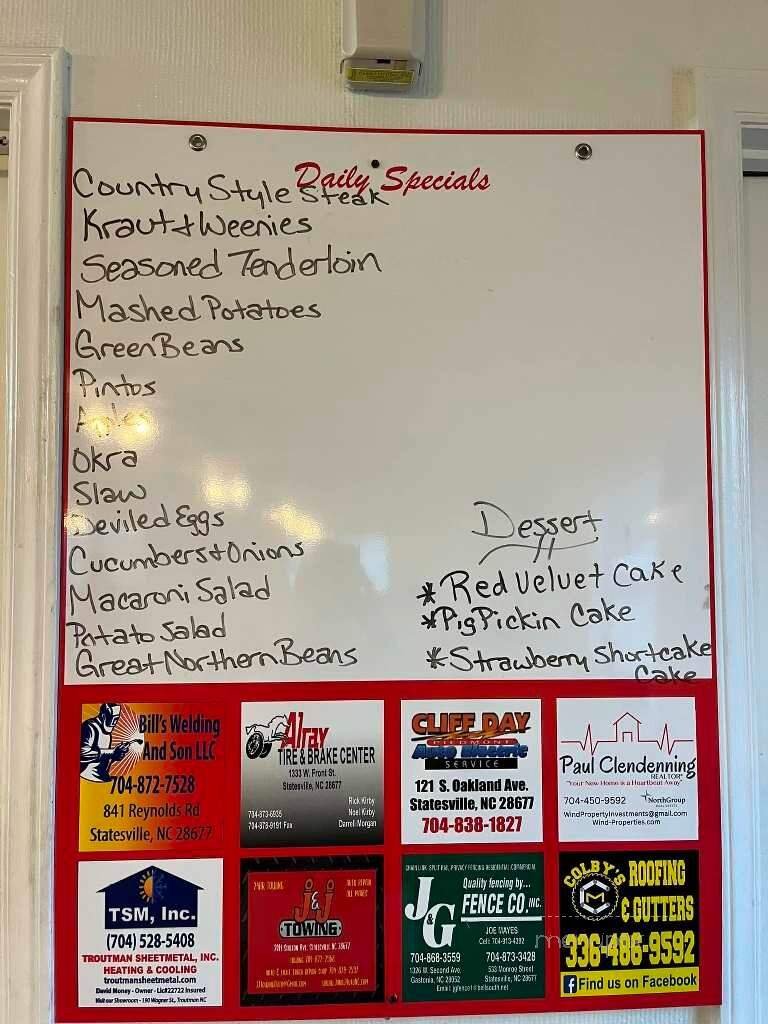 Daily Specials
Country Style Steak
Kraut & Weenies
Seasoned Tenderloin
Mashed Potatoes
Green Beans
Pintos
Apples
Okra
Slaw
Deviled Eggs
Cucumbers & Onions
Macaroni Salad
Potato Salad
Great Northern Beans
Dessert
* Red Velvet Cake
* Pig Pickin Cake
* Strawberry Shortcake
Cake
Bill's Welding
And Son LLC
704-872-7528
841 Reynolds Rd
Statesville, NC 28677
Alray
TIRE & BRAKE CENTER
1333 W. Front St.
Statesville, NC 28677
Rick Kirby
704-873-6935
Noel Kirby
704-878-9191 Fax
Darrell Morgan
CLIFF DAY
PIEDMONT
Auto Electric
SERVICE
121 S. Oakland Ave.
Statesville, NC 28677
704-838-1827
Paul Clendenning
REALTOR®
"Your New Home is a Heartbeat Away"
704-450-9592
NorthGroup
WindPropertyInvestments@gmail.com
Wind-Properties.com
TSM, Inc.
(704) 528-5408
TROUTMAN SHEETMETAL, INC.
HEATING & COOLING
troutmansheetmetal.com
David Money - Owner - Lic#22722 Insured
Visit our Showroom - 190 Wagner St., Troutman NC
24HR TOWING
J&J
TOWING
CHAIN LINK, SPLIT RAIL, PRIVACY FENCING RESIDENTIAL COMMERCIAL
Quality fencing by...
J&G
FENCE CO. INC.
JOE MAYES
Cell: 704-913-4392
704-868-3559
704-873-3428
1326 W. Second Ave.
533 Monroe Street
Gastonia, NC 28052
Statesville, NC 28677
Email: jgfence1@bellsouth.net
COLBY'S
ROOFING
& GUTTERS
CM
336-486-9592
Find us on Facebook